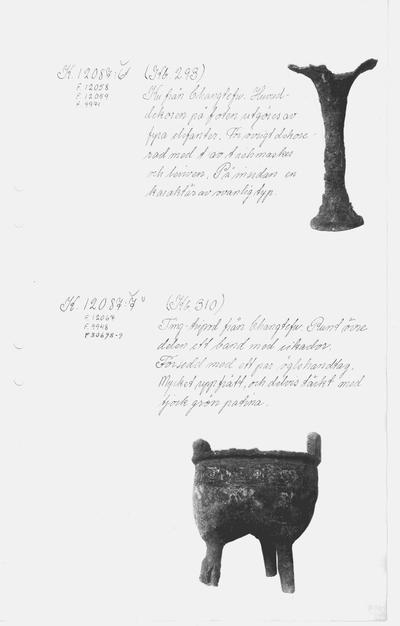 K. 12087:6 (Kb. 293)
F. 12058
F. 12059
F. 9971
Ku från Changtefu. Huvud-
dekoren på foten utgöres av
fyra elefanter. För övrigt dekore-
rad med t'ao t'iehmasker
och leiwen. På insidan en
karaktär av ovanlig typ.
K. 12087:7 (Kb 310)
F. 12067
F. 9948
Ting-tripod från Changtefu. Runt övre
delen ett band med cikador.
Försedd med ett par öglehandtag.
Mycket uppfrätt, och delvis täckt med
tjock grön patina.